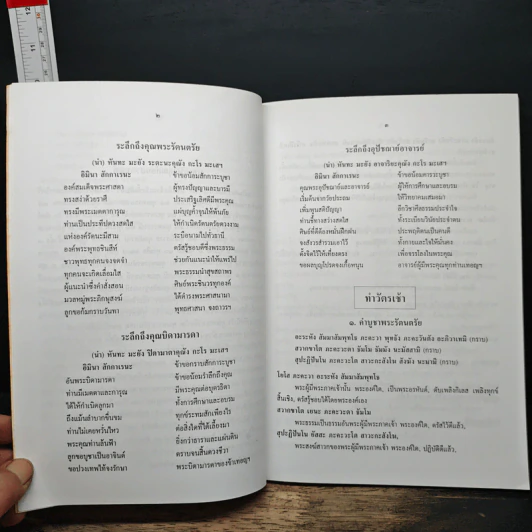 ๒
ระลึกถึงคุณพระรัตนตรัย
(นำ) หันทะ มะยัง ระตะนะคุณัง กะโร มะเสฯ
อิมินา สักกาเรนะ ข้าขอน้อมสักการะบูชา
องค์สมเด็จพระศาสดา ผู้ทรงปัญญาและบารมี
ทรงสง่าด้วยราศี ประเสริฐเลิศดีมีพระคุณ
ทรงมีพระเมตตาการุณ แผ่บุญค้ำจุนให้พ้นภัย
ท่านเป็นประทีปดวงสดใส ให้กำเนิดรัตนตรัยดวงงาม
แห่งองค์รัตนะมีสาม ระบือนามไปทั่วธานี
องค์พระพุทธชินสีห์ ตรัสรู้ชอบดีซึ่งพระธรรม
ชาวพุทธทุกคนจงจดจำ ช่วยกันแนะนำให้แพร่ไป
ทุกคนจะเกิดเลื่อมใส พระธรรมนำสุขสถาพร
ผู้แนะนำซึ่งคำสั่งสอน ศิษย์พระชินวรทุกองค์
มวลหมู่พระภิกษุสงฆ์ ได้ดำรงพระศาสนามา
ลูกขอก้มกราบวันทา พุทธศาสนา จงถาวรฯ
ระลึกถึงคุณบิดามารดา
(นำ) หันทะ มะยัง ปิตามาตาคุณัง กะโร มะเสฯ
อิมินา สักกาเรนะ ข้าขอกราบสักการะบูชา
อันพระบิดามารดา ข้าขอน้อมรำลึกถึงคุณ
ท่านมีเมตตาและการุณ มีพระคุณต่อบุตรธิดา
ได้ให้กำเนิดลูกมา ทั้งการศึกษาและอบรม
ถึงแม้ลำบากขื่นขม ทุกข์ระทมสักเพียงไร
ท่านไม่เคยหวั่นไหว ต่อสิ่งใดที่ได้เลี้ยงมา
พระคุณท่านล้นฟ้า ยิ่งกว่าธาราและแผ่นดิน
ลูกขอบูชาเป็นอาจิณต์ ตราบจนสิ้นดวงชีวา
ขอปวงเทพไท้จงรักษา พระบิดามารดาของข้าเทอญฯ
๓
ระลึกถึงอุปัชฌาย์อาจารย์
(นำ) หันทะ มะยัง อาจาริยะคุณัง กะโร มะเสฯ
อิมินา สักกาเรนะ ข้าขอน้อมการะบูชา
คุณพระอุปัชฌาย์และอาจารย์ ผู้ให้การศึกษาและอบรม
เริ่มต้นจากวัยประถม ให้วิทยาคมเสมอมา
เพิ่มพูนสติปัญญา อีกวิชาศีลธรรมประจำใจ
ท่านชี้ทางสว่างสดใส ทั้งระเบียบวินัยประจำตน
ศิษย์ที่ดีต้องหมั่นฝึกฝน ประพฤติตนเป็นคนดี
จงสังวรสำรวมเอาไว้ ทั้งกายและใจให้มั่นคง
ตั้งจิตไว้ให้เที่ยงตรง เพื่อจรรโลงในพระคุณ
ขอผลบุญโปรดจงเกื้อหนุน อาจารย์ผู้มีพระคุณทุกท่านเทอญฯ
ทำวัตรเช้า
๑. คำบูชาพระรัตนตรัย
อะระหัง สัมมาสัมพุทโธ ภะคะวา พุทธัง ภะคะวันตัง อะภิวาเทมิ (กราบ)
สวากขาโต ภะคะวะตา ธัมโม ธัมมัง นะมัสสามิ (กราบ)
สุปะฏิปันโน ภะคะวะโต สาวะกะสังโฆ สังฆัง นะมามิ (กราบ)
โย โส ภะคะวา อะระหัง สัมมาสัมพุทโธ
พระผู้มีพระภาคเจ้านั้น พระองค์ใด, เป็นพระอรหันต์, ดับเพลิงกิเลส เพลิงทุกข์
สิ้นเชิง, ตรัสรู้ชอบได้โดยพระองค์เอง
สวากขาโต เยนะ ภะคะวะตา ธัมโม
พระธรรมเป็นธรรมอันพระผู้มีพระภาคเจ้า พระองค์ใด, ตรัสไว้ดีแล้ว,
สุปะฏิปันโน ยัสสะ ภะคะวะโต สาวะกะสังโฆ,
พระสงฆ์สาวกของพระผู้มีพระภาคเจ้า พระองค์ใด, ปฏิบัติดีแล้ว,